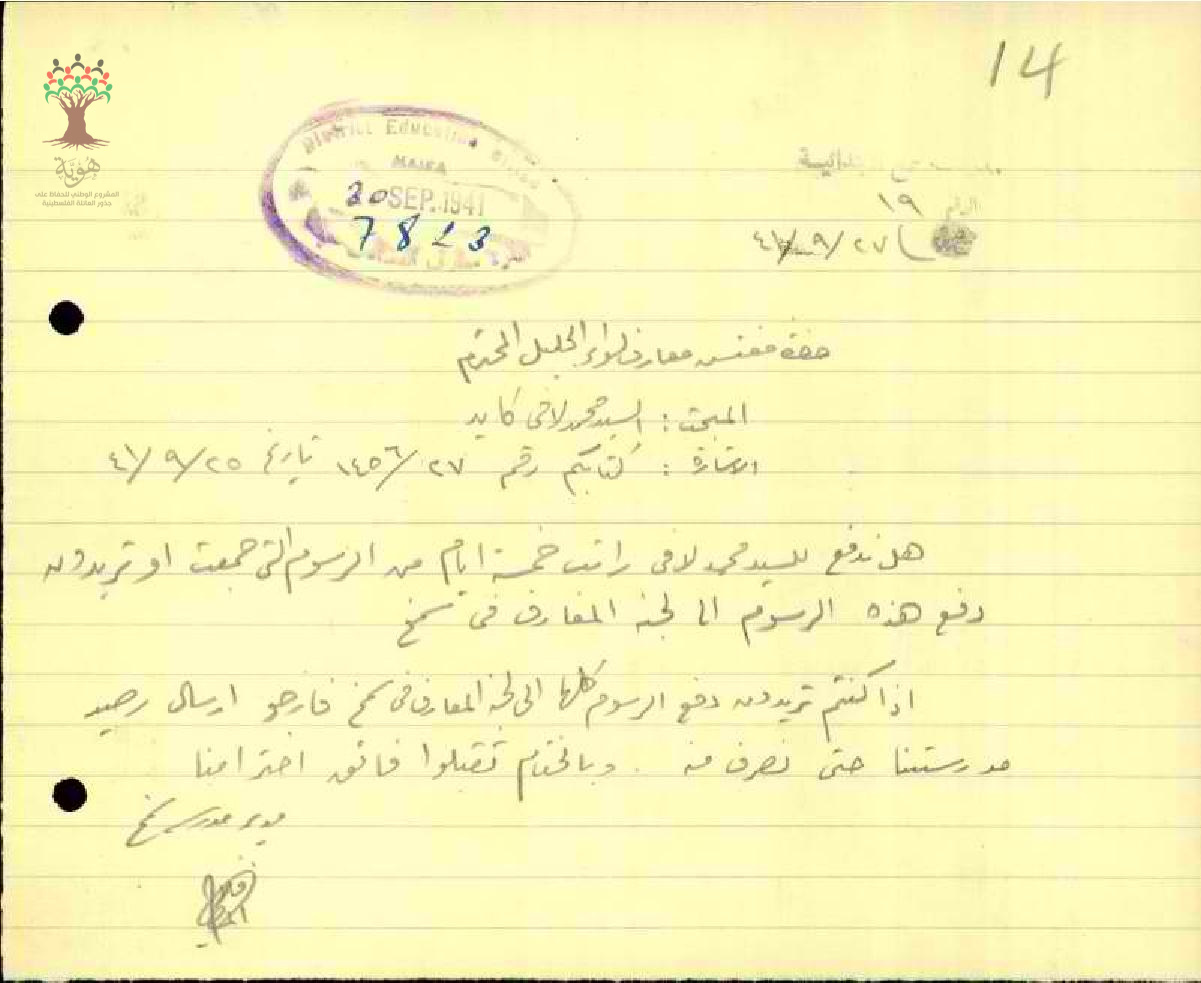 14
هوية
المشروع الوطني للحفاظ على
جذور العائلة الفلسطينية
District Education Office
HAIFA
30 SEP. 1941
7823
الرقم ١٩
٢٧/٩/٤١
حضرة مفتش معارف لواء الجليل المحترم
المبحث : السيد محمد لافي كايد
الاشارة : كتابكم رقم ٢٧/١٤٥٦ تاريخ ٢٥/٩/٤١
هل ندفع للسيد محمد لافي راتب خمسة ايام من الرسوم التي جمعت او تريدون
دفع هذه الرسوم الى لجنة المعارف في سمخ
اذا كنتم تريدون دفع الرسوم كلها الى لجنة المعارف في سمخ فارجو ارسال رصيد
مدرستنا حتى نصرف منه . وبالختام تقبلوا فائق احترامنا
مدير مدرسة سمخ